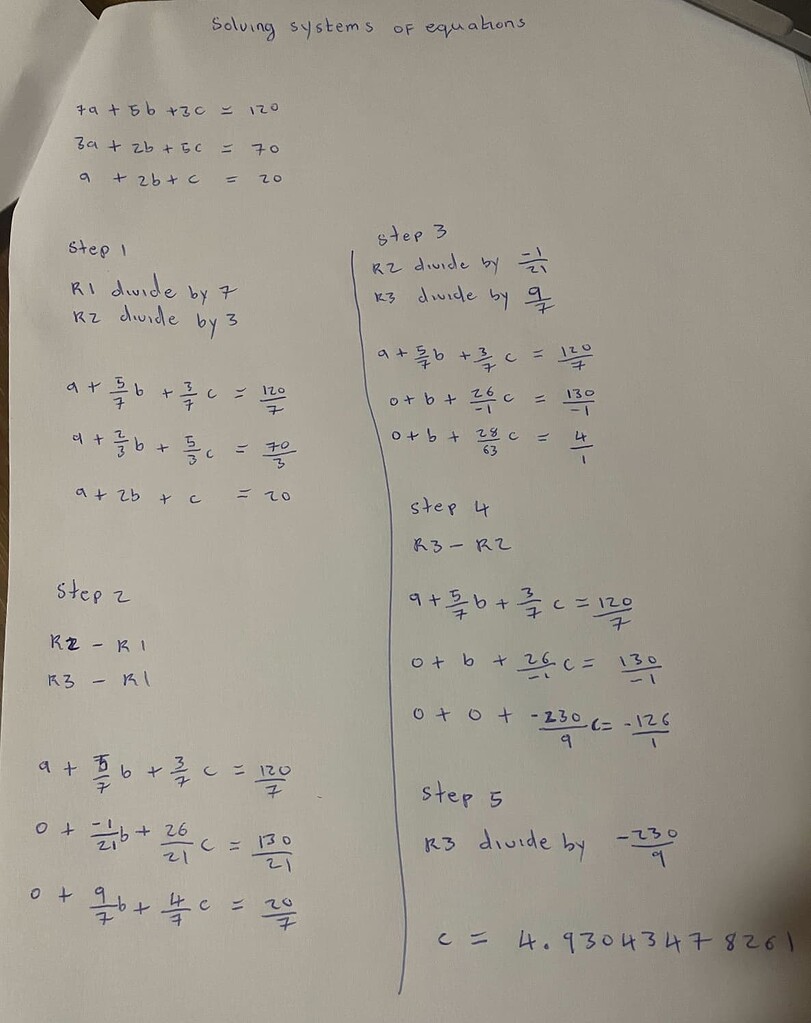 Solving systems of equations
7a + 5b + 3c = 120
3a + 2b + 5c = 70
a + 2b + c = 20
Step 1
R1 divide by 7
R2 divide by 3
a + 5/7 b + 3/7 c = 120/7
a + 2/3 b + 5/3 c = 70/3
a + 2b + c = 20
Step 2
R2 - R1
R3 - R1
a + 5/7 b + 3/7 c = 120/7
0 + -1/21 b + 26/21 c = 130/21
0 + 9/7 b + 4/7 c = 20/7
Step 3
R2 divide by -1/21
R3 divide by 9/7
a + 5/7 b + 3/7 c = 120/7
0 + b + 26/-1 c = 130/-1
0 + b + 28/63 c = 4/1
Step 4
R3 - R2
a + 5/7 b + 3/7 c = 120/7
0 + b + 26/-1 c = 130/-1
0 + 0 + -230/9 c = -126/1
Step 5
R3 divide by -230/9
c = 4.930434478261